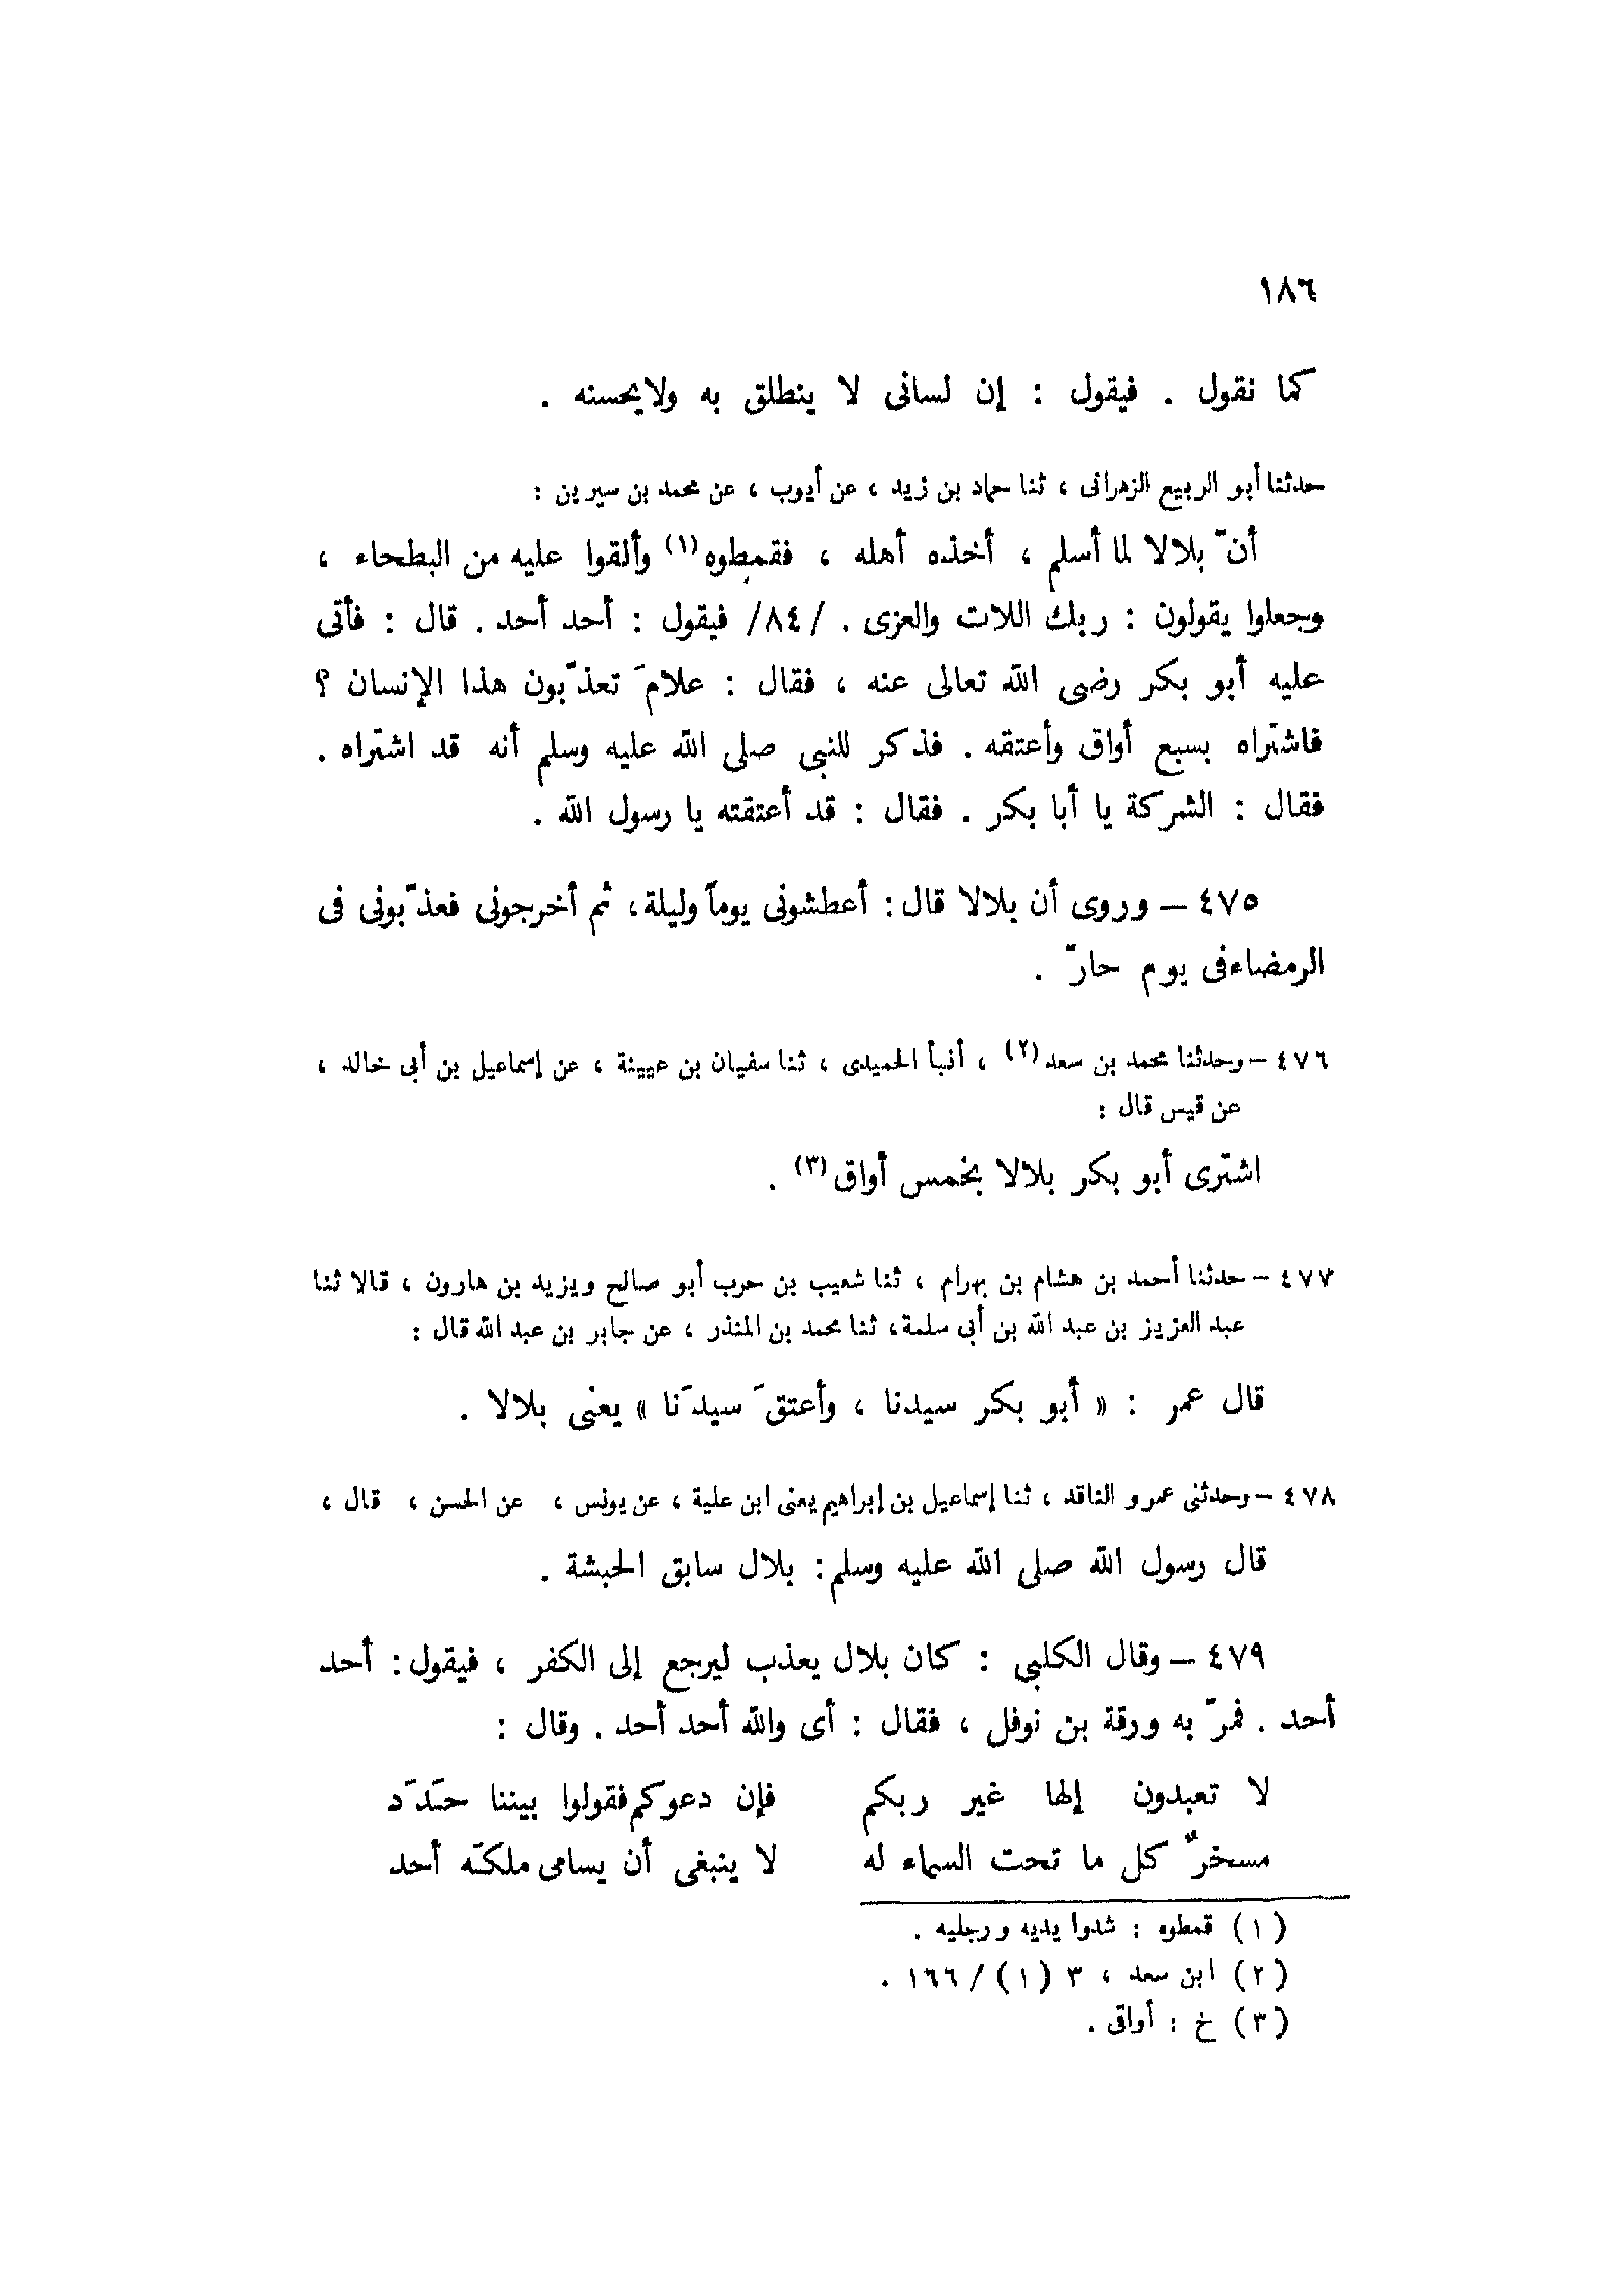 ١٨٦
كما نقول . فيقول : إن لسانى لا ينطلق به ولايحسنه .
حدثنا أبو الربيع الزهرانى ، ثنا حماد بن زيد ، عن أيوب ، عن محمد بن سيرين :
أنّ بلالا لما أسلم ، أخذه أهله ، فقمطوه(١) وألقوا عليه من البطحاء ،
وجعلوا يقولون : ربك اللات والعزى . /٨٤/ فيقول : أحد أحد . قال : فأتى
عليه أبو بكر رضى الله تعالى عنه ، فقال : علامَ تعذّبون هذا الإنسان ؟
فاشتراه بسبع أواق وأعتقه . فذكر للنبى صلى الله عليه وسلم أنه قد اشتراه .
فقال : الشركة يا أبا بكر . فقال : قد أعتقته يا رسول الله .
٤٧٥ – وروى أن بلالا قال : أعطشونى يوماً وليلة، ثم أخرجونى فعذّبونى فى
الرمضاءفى يوم حارّ .
٤٧٦ – وحدثنا محمد بن سعد(٢) ، أنبأ الحميدى ، ثنا سفيان بن عيينة ، عن إسماعيل بن أبى خالد ،
عن قيس قال :
اشترى أبو بكر بلالا بخمس أواق(٣) .
٤٧٧ – حدثنا أحمد بن هشام بن بهرام ، ثنا شعيب بن حرب أبو صالح ويزيد بن هارون ، قالا ثنا
عبد العزيز بن عبد الله بن أبى سلمة، ثنا محمد بن المنذر ، عن جابر بن عبد الله قال :
قال عمر : « أبو بكر سيدنا ، وأعتقَ سيدَنا » يعنى بلالا .
٤٧٨ – وحدثنى عمرو الناقد ، ثنا إسماعيل بن إبراهيم يعنى ابن علية ، عن يونس ، عن الحسن ، قال ،
قال رسول الله صلى الله عليه وسلم : بلال سابق الحبشة .
٤٧٩ – وقال الكلبى : كان بلال يعذب ليرجع إلى الكفر ، فيقول : أحد
أحد . فمرّ به ورقة بن نوفل ، فقال : أى والله أحد أحد . وقال :
لا تعبدون إلها غير ربكم فإن دعوكم فقولوا بيننا حَدَد
مسخرٌ كل ما تحت السماء له لا ينبغى أن يسامى ملكَه أحد
(١) قمطوه : شدوا يديه ورجليه .
(٢) ابن سعد ، ٣ (١) / ١٦٦ .
(٣) خ : أواقى .